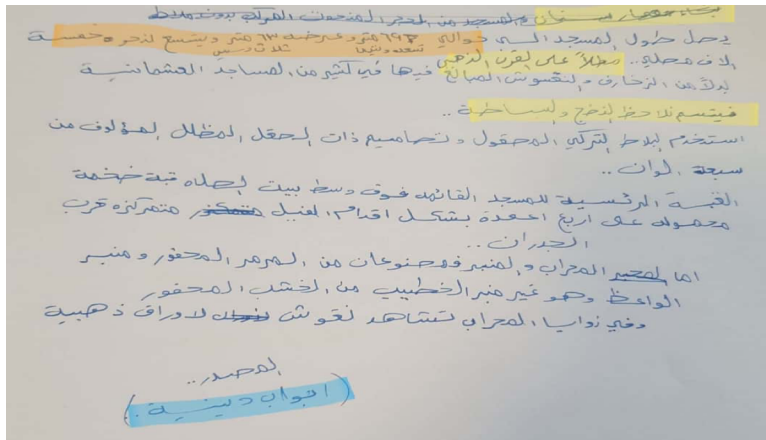 بناه معمار سنان والمسجد من الحجر المنحوت المركب بدون ملاط
يصل طول المسجد الى حوالي ٦٩ متر وعرضه ٦٣ متر ويتسع لنحو خمسة
تسعة وستين ثلاث وستين
الاف مصلي.. مطلاً على القرن الذهبي
بدلاً من الزخارف والنقوش المبالغ فيها في كثير من المساجد العثمانية
فيتسم نلاحظ النضج والبساطة ..
استخدم البلاط التركي المصقول وتصاميم ذات الحقل المظلل المؤلف من
سبعة الوان ..
القبة الرئسية للمسجد القائمه فوق وسط بيت الصلاه قبة ضخمة
محموله على اربع اعمدة بشكل اقدام الفيل متمركزه قرب
الجدران ..
اما المحراب والمنبر فمصنوعان من المرمر المحفور ومنبر
الواعظ وهو غير منبر الخطيب من الخشب المحفور
وفي زوايا المحراب تشاهد نقوش لاوراق ذهبية
المصدر ..
( ابواب دينية . )